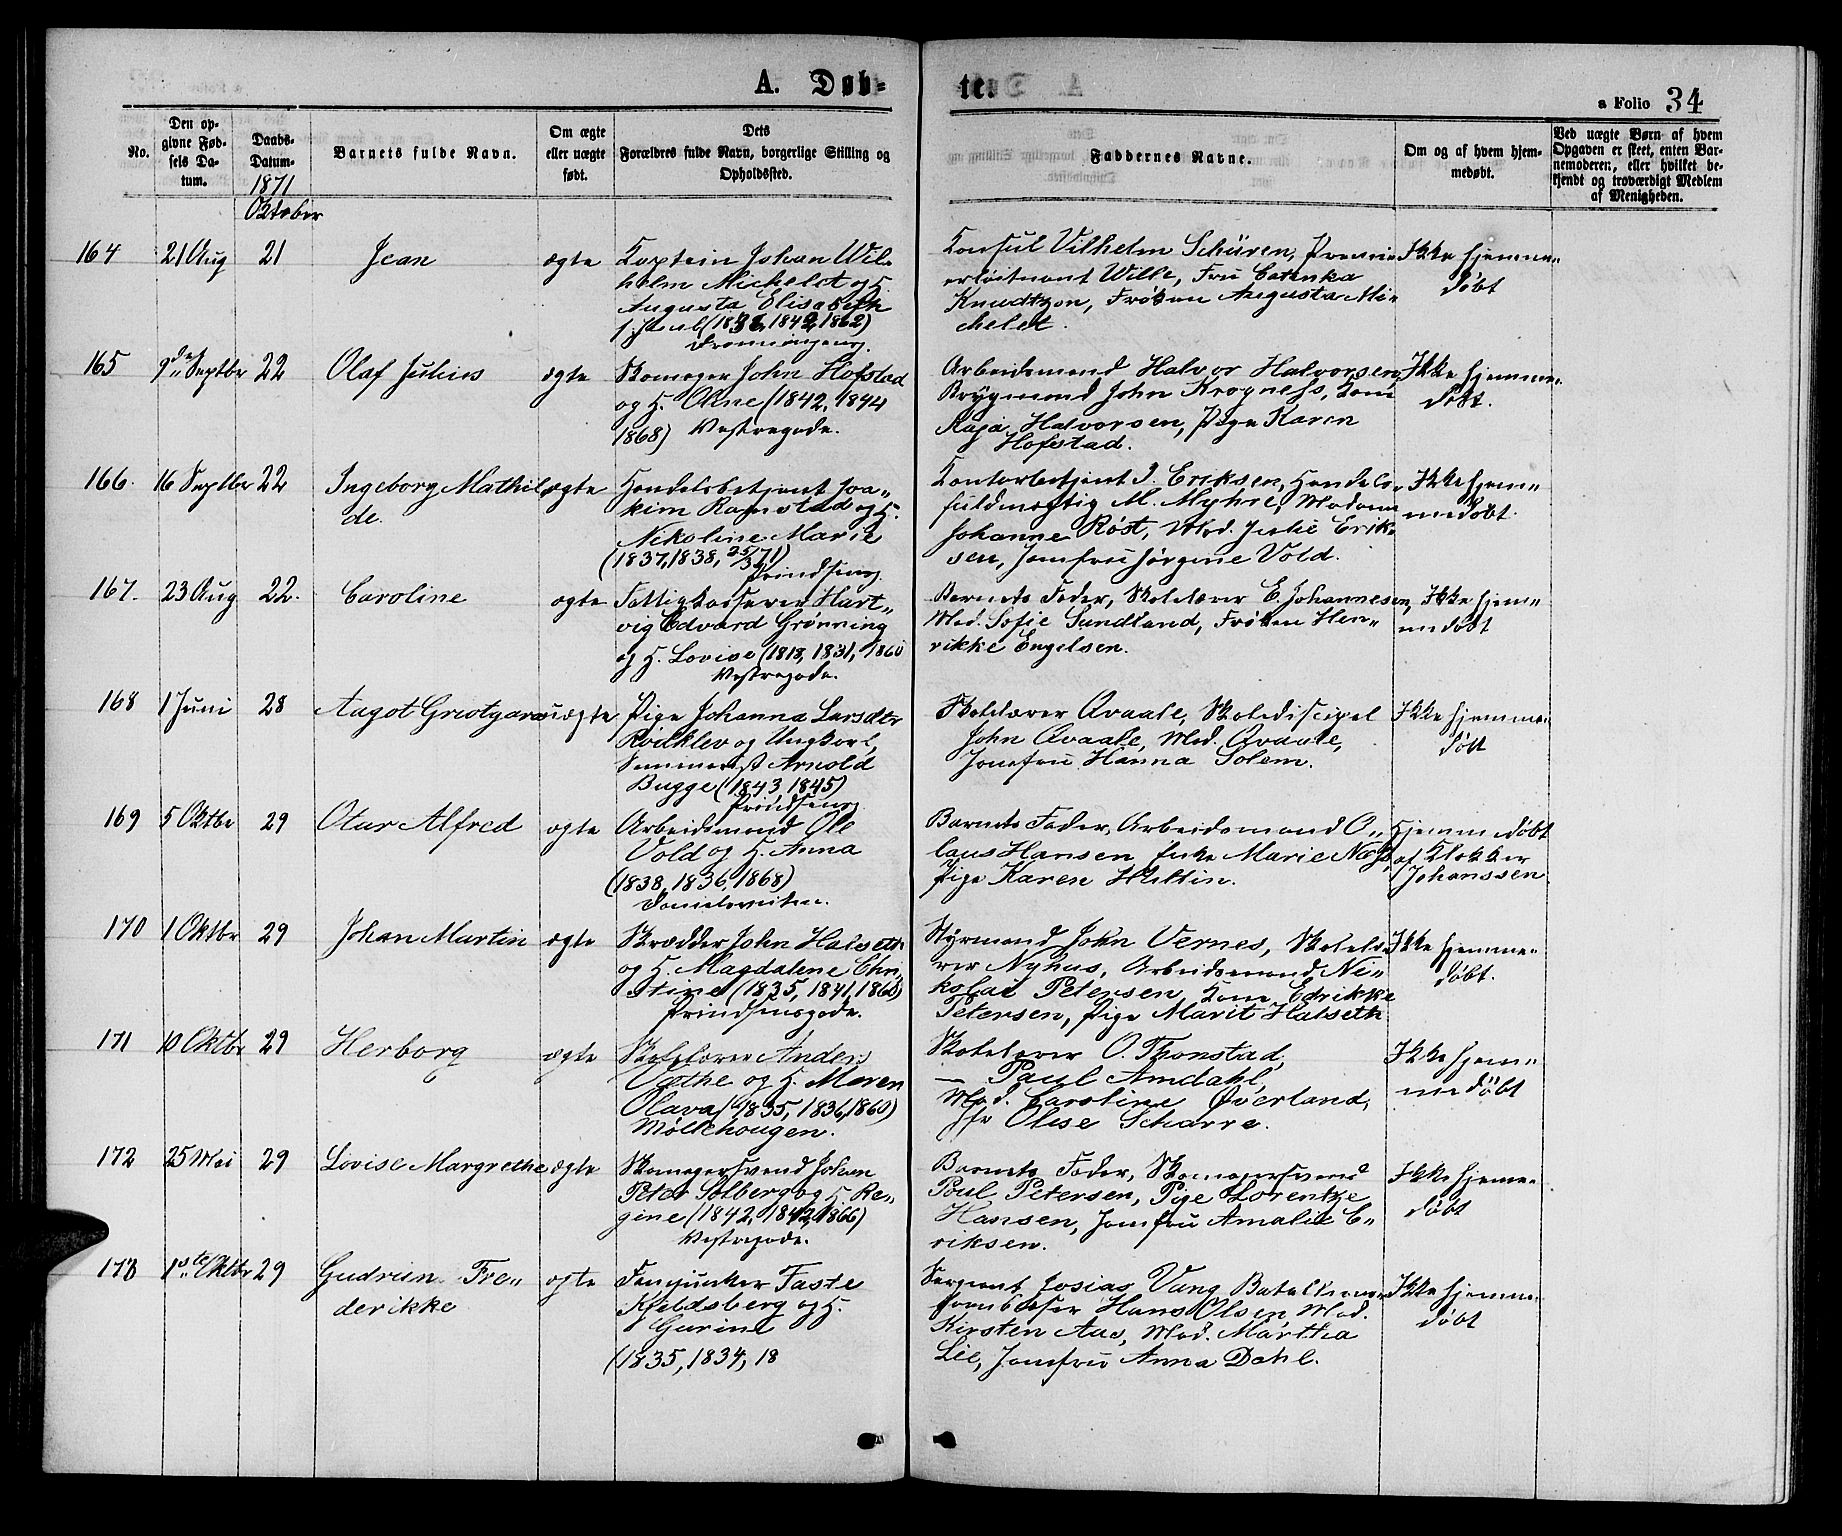 A. Døb=
te.
a Folio 34
No.
Den op-
givne Fød-
sels Da-
tum.
Daabs-
Datum.
1871
Oktober
Barnets fulde Navn.
Om ægte
eller uægte
født.
Dets
Forældres fulde Navn, borgerlige Stilling og
Opholdssted.
Faddernes Navne.
Om og af hvem hjem-
medøbt.
Ved uægte Børn af hvem
Opgaven er skeet, enten Bar-
nemoderen, eller hvilket be-
kjendt og troværdigt Medlem
af Menigheden.
164 21 Aug 21 Jean ægte
Captein Johan Wil-
helm Michelet og H.
Augusta Elisabeth
(1836, 1842, 1862)
Dronningensg.
Konsul Vilhelm Schüren, Premi-
erløitnant Wille, Fru Catinka
Knudtzon, Frøken Augusta Mi-
chelet.
Ikke hjemme-
døbt
165 9de Septbr 22 Olaf Julius ægte
Skomager John Hofstad
og H. Olline (1842, 1844
1868) Vestregade.
Arbeidsmand Halvor Halvorsen,
Brygmand John Krogness, Kone
Kaja Halvorsen, Pige Karen
Hofstad.
Ikke hjemme-
døbt.
166. 16 Septbr 22 Ingeborg Mathil-
de. ægte
Handelsbetjent Joa-
kim Ramstad og H.
Nikoline Marie
(1837, 1838, 25/3 71)
Prindseng.
Kontorbetjent J. Eriksen, Handels-
fuldmægtig M. Myhre, Madame
Johanne Røst, Mad. Julie Erik-
sen, Jomfru Jørgine Vold.
Ikke hjem-
medøbt.
167. 23 Aug 22. Caroline ægte
Fattigkasserer Hart-
vig Edvard Grønning
og H. Lovise (1818, 1831, 1860
Vestregade.
Barnets Fader, Skolelærer E. Johannesen,
Mad. Sofie Sundland, Frøken Hen-
rikke Engelsen.
Ikke hjem-
medøbt
168 1 Juni 28 Aagot uægte
Pige Johanna Larsdtr
Rødklev og Ungkarl,
Arnold
Bugge (1843, 1845)
Prindseng.
Skolelærer Qvaale, Skolediscipel
John Qvaale, Mad. Qvaale,
Jomfru Hanna Solem.
Ikke hjemme-
døbt
169 5 Oktbr 29 Otar Alfred ægte
Arbeidsmand Ole
Vold og H. Anna
(1838, 1836, 1868)
Danielsveiten.
Barnets Fader, Arbeidsmand O-
laus Hansen, Enke Marie Næss,
Pige Karen Hultin.
Hjemmedøbt
af Klokker
Johanssen
170 1 Oktbr 29 Johan Martin ægte
Skrædder John Halseth
og H. Magdalene Chri-
stine (1835, 1841, 1860)
Prindsensgade.
Styrmand John Vernes, Skolelæ-
rer Nyhus, Arbeidsmand Ni-
kolai Petersen, Kone Edrikke
Petersen, Pige Marit Halseth
Ikke hjemme-
døbt.
171 10 Oktbr 29 Herborg ægte
Skolelærer Anders
Væthe og H. Maren
Olava (1835, 1836, 1860)
Møllehougen.
Skolelærer O. Thonstad,
— Paul Amdahl,
Mad. Caroline Øverland,
Jfr Olise Scharre.
Ikke hjem-
medøbt
172 25 Mai 29 Lovise Margrethe ægte
Skomagersvend Johan
Peter Solberg og H. Re-
gine (1842, 1842, 1866)
Vestregade.
Barnets Fader, Skomagersvend
Poul Petersen, Pige Lorentze
Hansen, Jomfru Amalie E-
riksen.
Ikke hjemme-
døbt
173 1ste Oktbr 29 Gudrun Fre-
derikke ægte
Fanejunker Faste
Kjeldsberg og H.
Gurine
(1835, 1834, 18
Sergeant Josias Vang, Batallions-
Hans Olsen, Mad.
Kirsten Aas, Mad. Martha
Lie, Jomfru Anna Dahl.
Ikke hjemme-
døbt